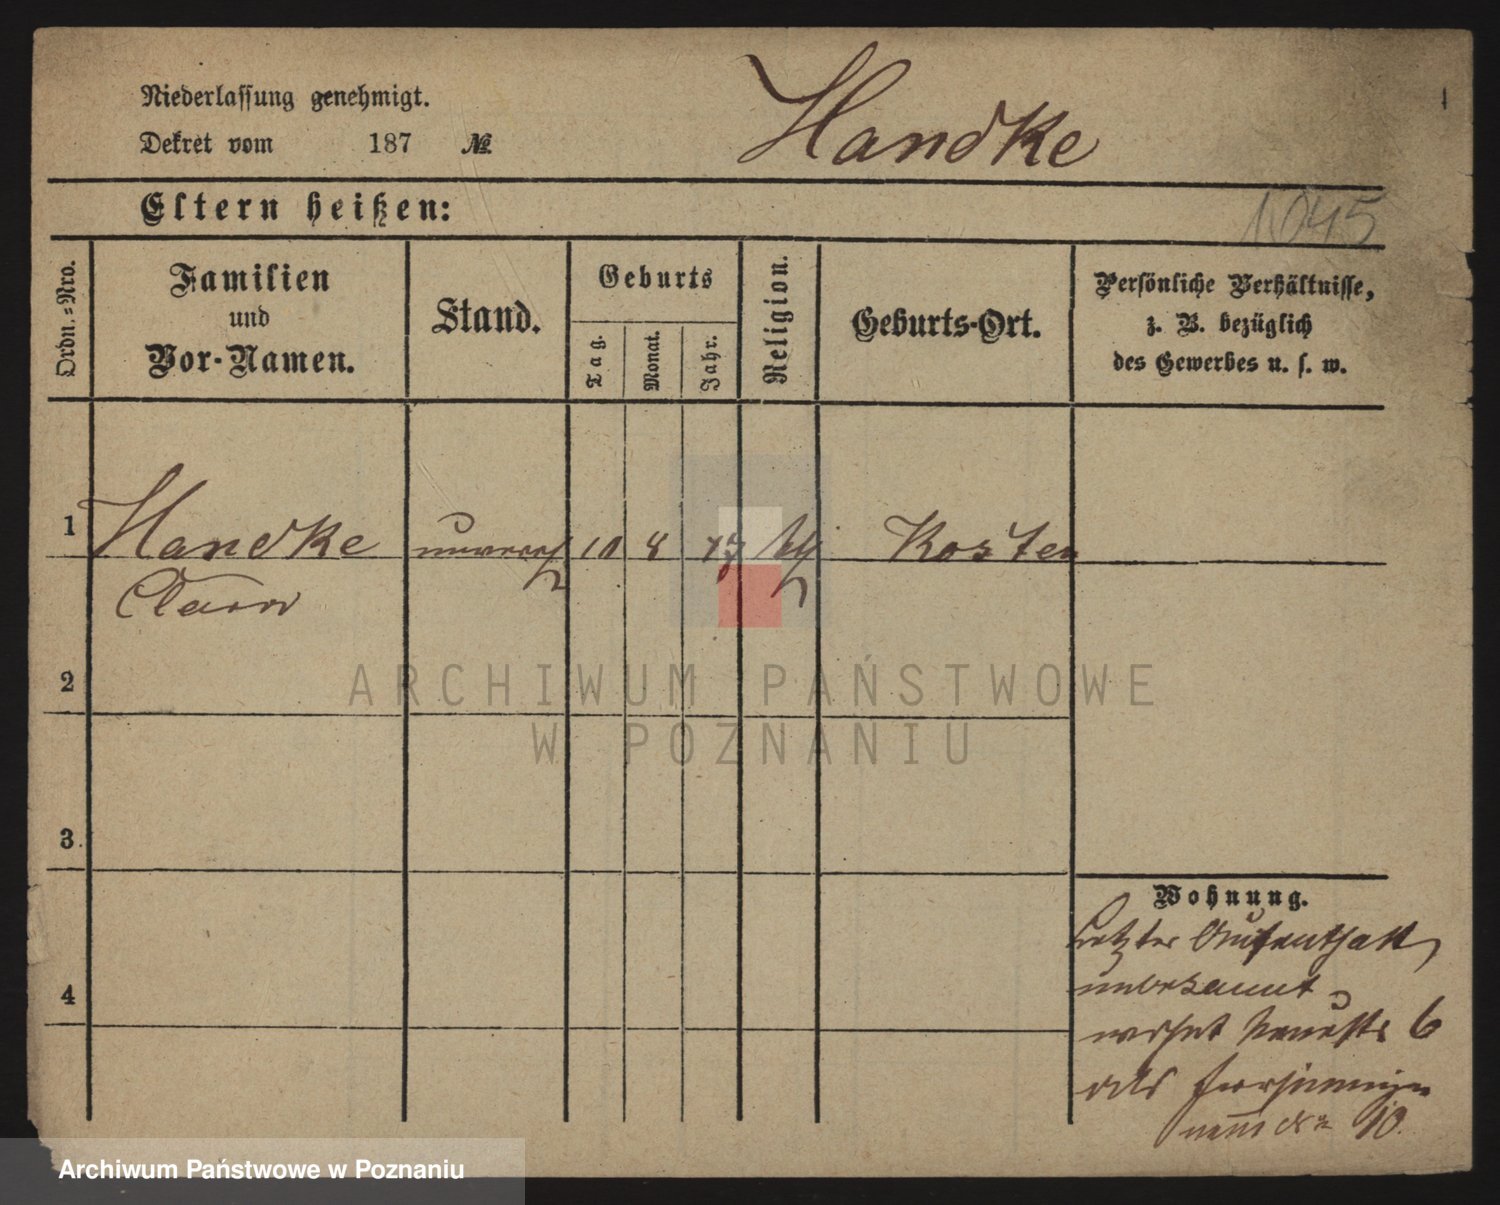 Niederlassung genehmigt.
Dekret vom 187 №
Handke
1045
Eltern heißen:
Ordn.=Nro.
Familien
und
Vor-Namen.
Stand.
Geburts
Tag.
Monat.
Jahr.
Religion.
Geburts-Ort.
Persönliche Verhältnisse,
z. B. bezüglich
des Gewerbes u. s. w.
1 Handke unvereh 10 8 Kosten
2
3
4
Wohnung.
Letzter Aufenthalt
unbekannt
wohnt 6
als
10
ARCHIWUM PAŃSTWOWE
W POZNANIU
Archiwum Państwowe w Poznaniu